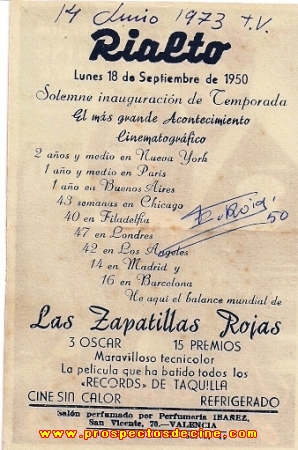 14 Junio 1973 T.V.
Rialto
Lunes 18 de Septiembre de 1950
Solemne inauguración de Temporada
El más grande Acontecimiento
Cinematográfico
2 años y medio en Nueva York
1 año y medio en París
1 año en Buenos Aires
43 semanas en Chicago
40 en Filadelfia
47 en Londres
42 en Los Angeles
14 en Madrid y
16 en Barcelona
50
He aquí el balance mundial de
Las Zapatillas Rojas
3 OSCAR 15 PREMIOS
Maravilloso tecnicolor
La película que ha batido todos los
«RECORDS» DE TAQUILLA
CINE SIN CALOR REFRIGERADO
Salón perfumado por Perfumería IBAÑEZ,
San Vicente, 70.-VALENCIA
www.prospectosdecine.com